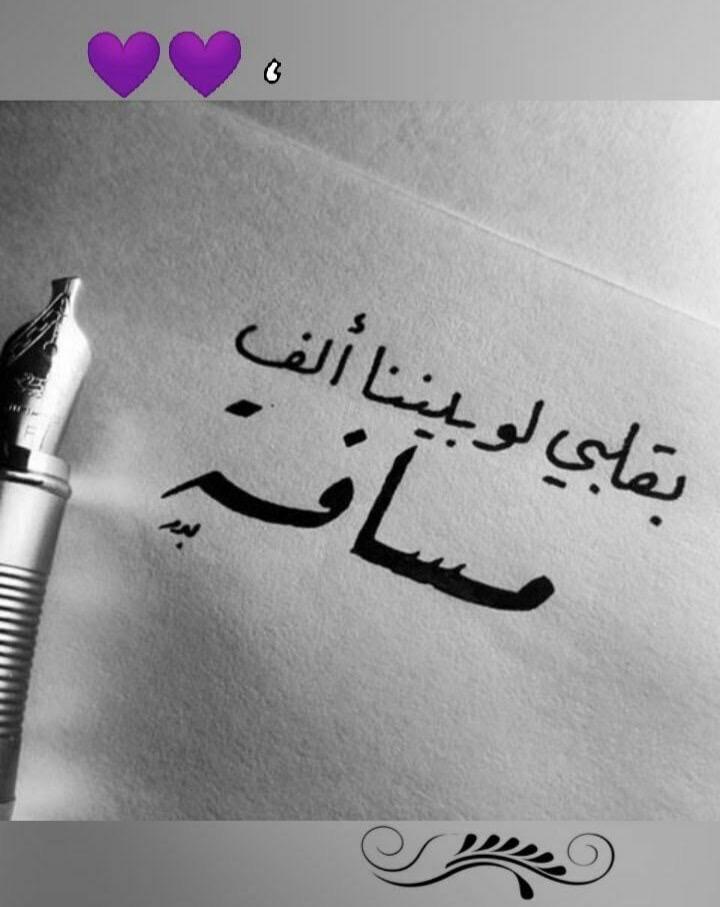 ،
بقلبي لو بيننا ألف
مسافة
بدر